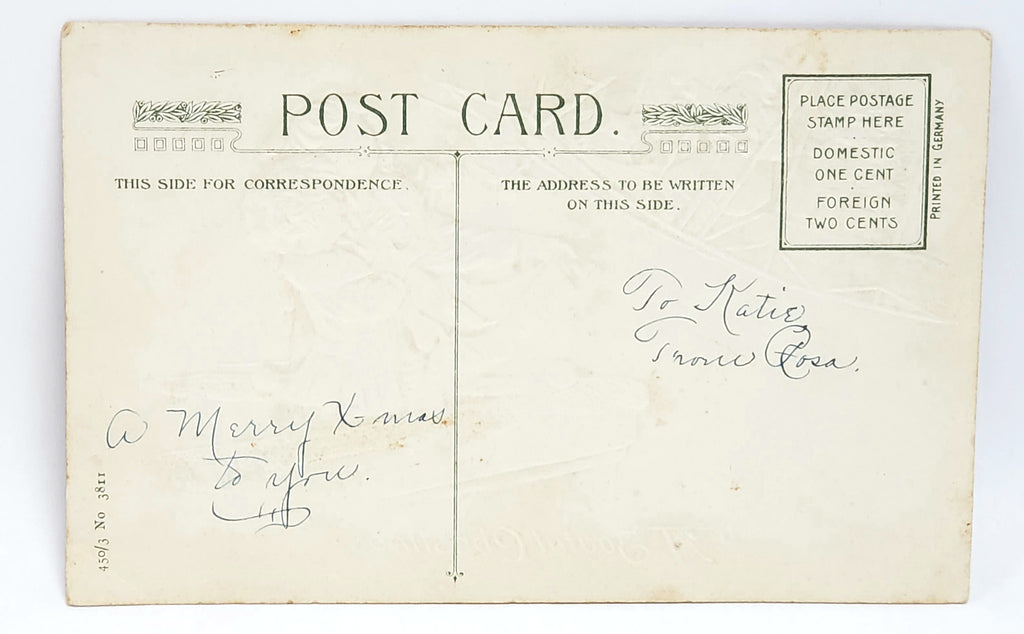 POST CARD.
THIS SIDE FOR CORRESPONDENCE.
THE ADDRESS TO BE WRITTEN
ON THIS SIDE.
PLACE POSTAGE
STAMP HERE
DOMESTIC
ONE CENT
FOREIGN
TWO CENTS
PRINTED IN GERMANY
To Katie,
From Rosa.
A Merry X-mas
to you.
450/3 No 3811